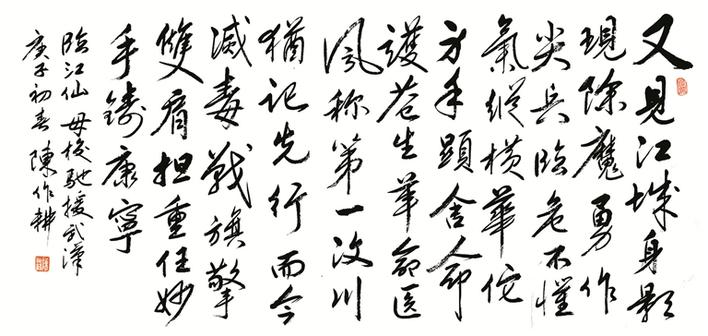 又見江城身影
現除魔勇作
尖兵臨危不懼
氣縱橫華佗
方手顯舍命
護蒼生革命醫
風称第一汶川
猶記先行而今
滅毒戰旗擎
雙肩担重任妙
手鑄康寧
臨江仙 母校馳援武漢
庚子初春 陳作耕